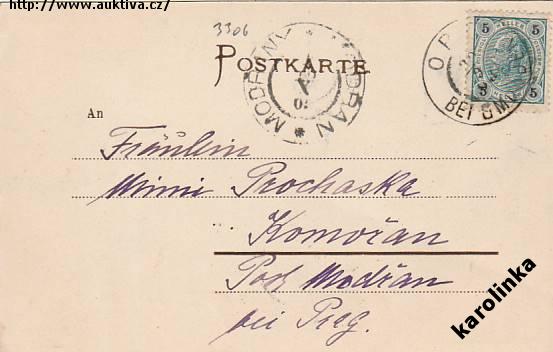 http://www.auktiva.cz/
3306
POSTKARTE
MODŘANY * MODRAN *
BEI
5 HELLER 5
5 5
An
Fräulein
Mimi Prochaska
Komořan
Post Modřan
bei Prag.
karolinka